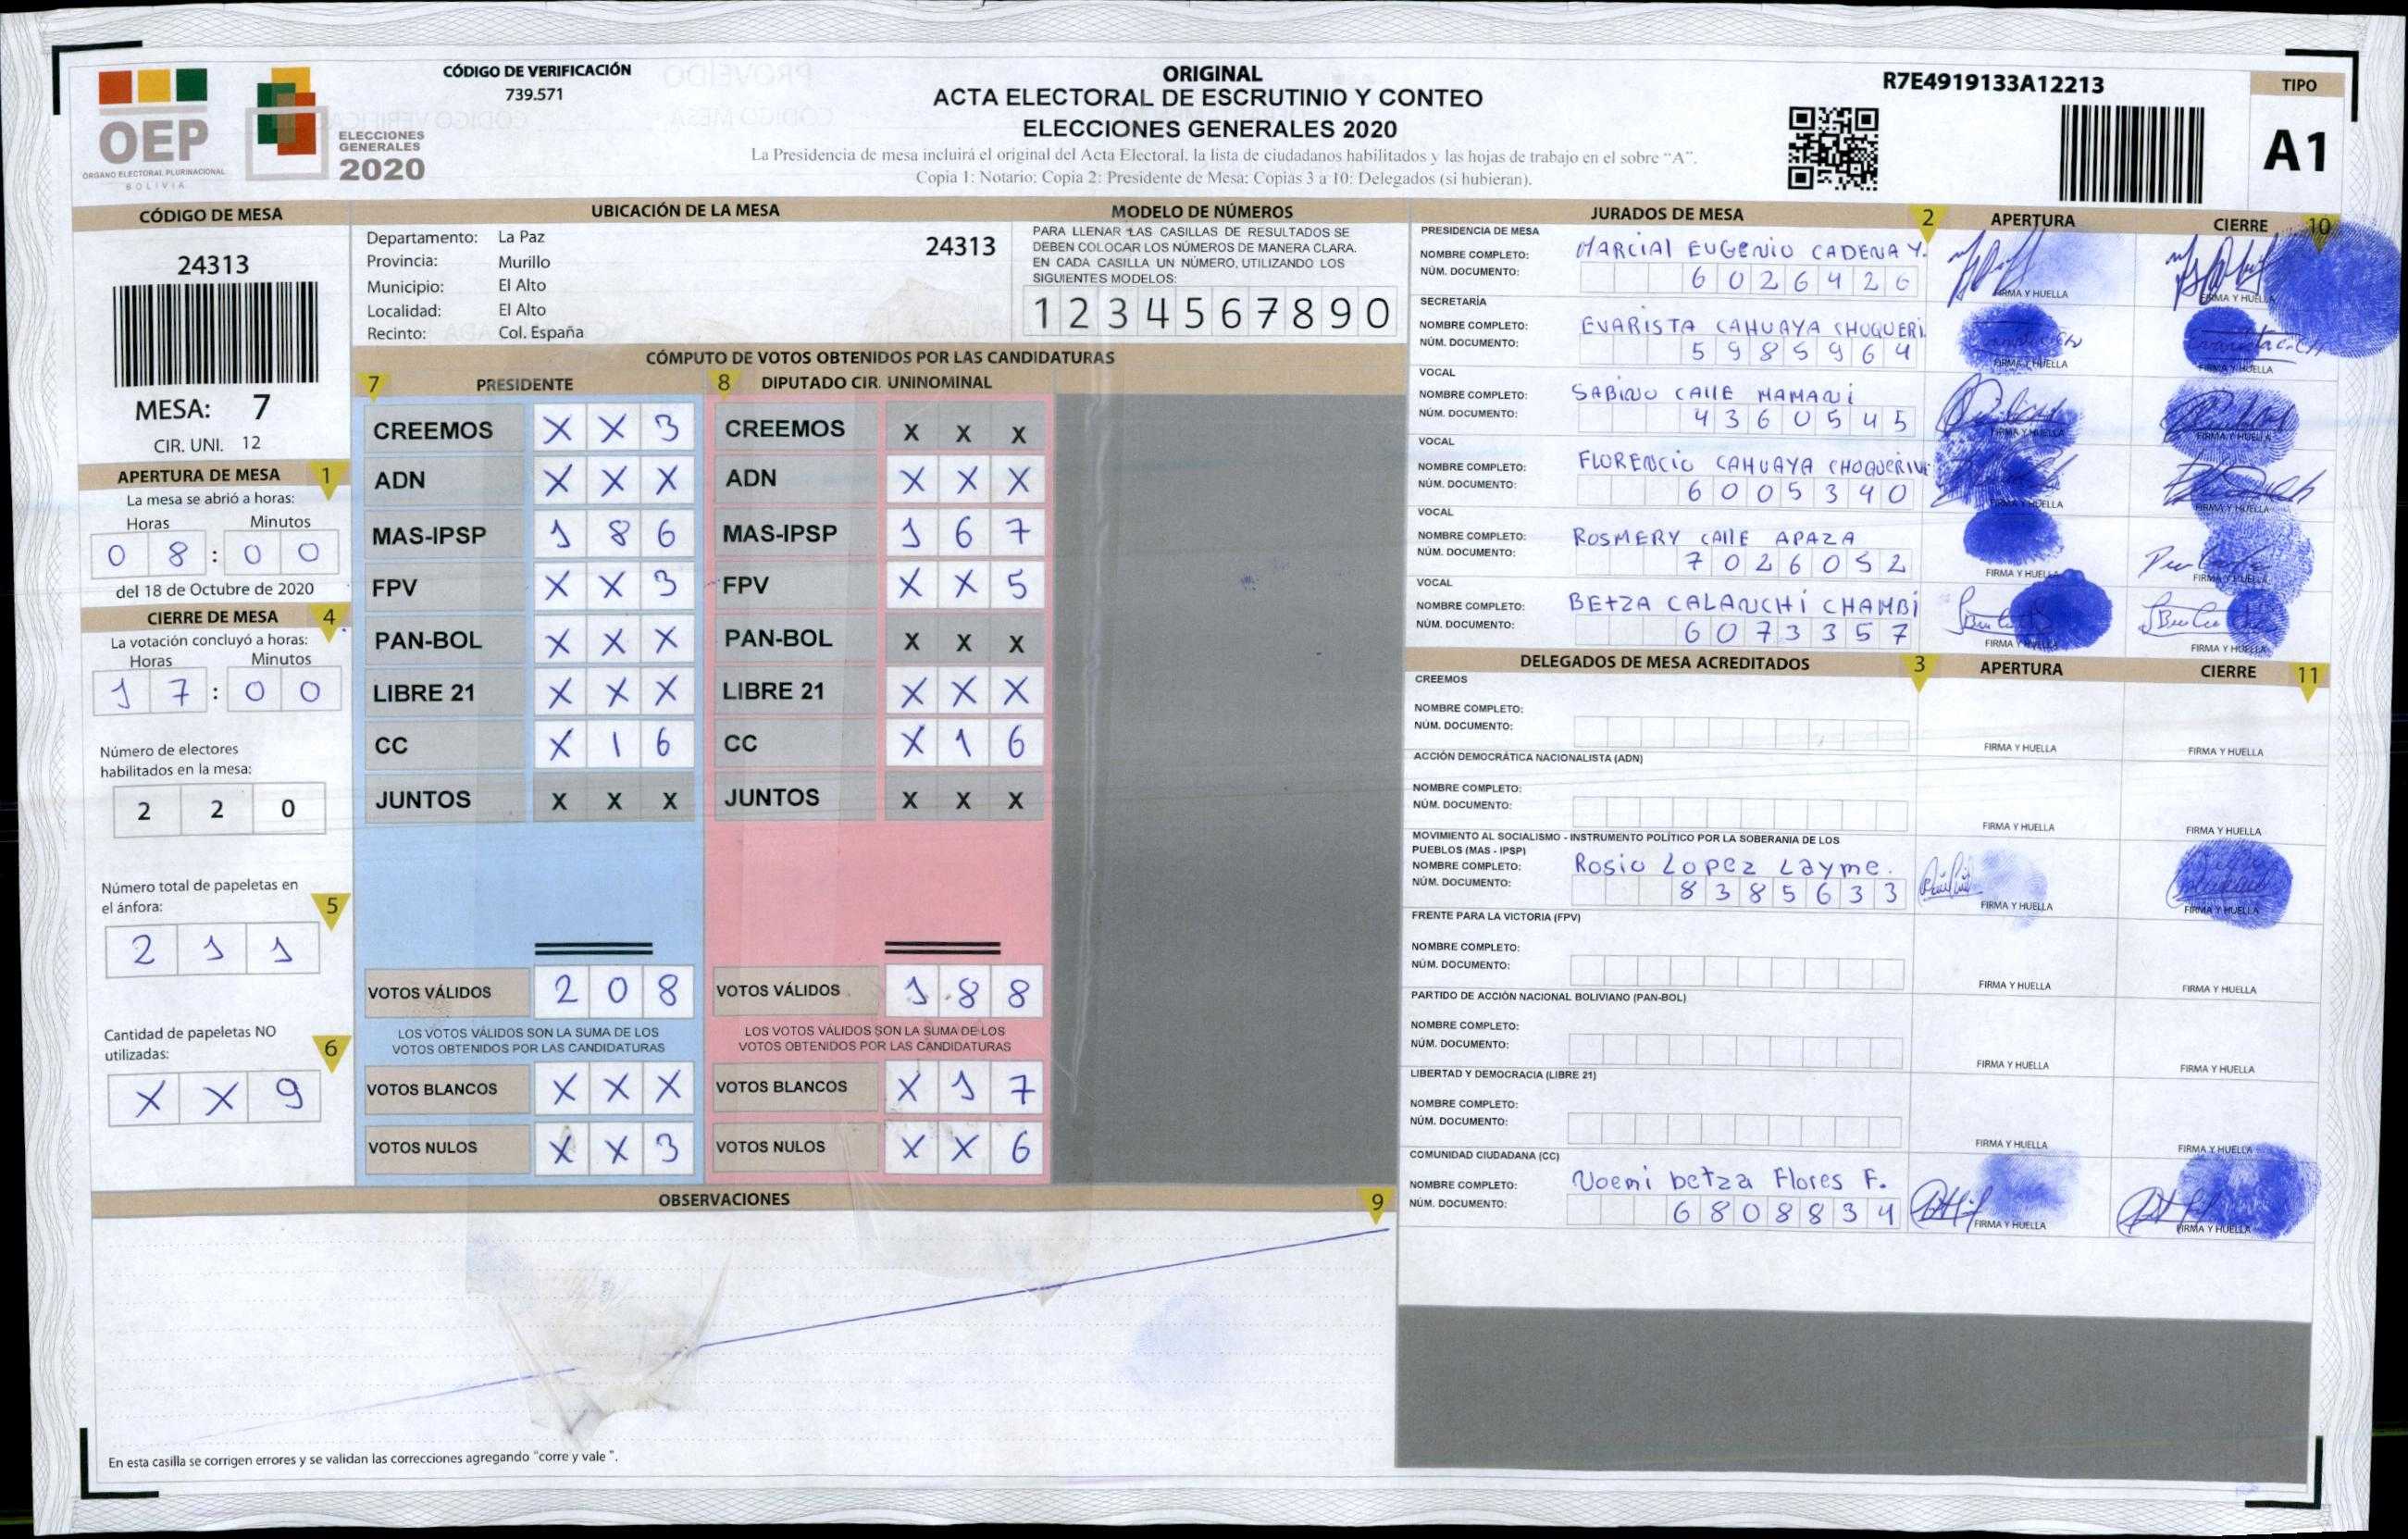 CÓDIGO DE VERIFICACIÓN
739.571
OEP
ÓRGANO ELECTORAL PLURINACIONAL
BOLIVIA
ELECCIONES
GENERALES
2020
ORIGINAL
ACTA ELECTORAL DE ESCRUTINIO Y CONTEO
ELECCIONES GENERALES 2020
La Presidencia de mesa incluirá el original del Acta Electoral, la lista de ciudadanos habilitados y las hojas de trabajo en el sobre "A".
Copia 1: Notario; Copia 2: Presidente de Mesa; Copias 3 a 10: Delegados (si hubieran).
R7E4919133A12213
TIPO
A1
CÓDIGO DE MESA
24313
MESA: 7
CIR. UNI. 12
APERTURA DE MESA 1
La mesa se abrió a horas:
Horas Minutos
0 8 : 0 0
del 18 de Octubre de 2020
CIERRE DE MESA 4
La votación concluyó a horas:
Horas Minutos
1 7 : 0 0
Número de electores
habilitados en la mesa:
2 2 0
Número total de papeletas en
el ánfora: 5
2 1 1
Cantidad de papeletas NO
utilizadas: 6
X X 9
UBICACIÓN DE LA MESA
Departamento: La Paz 24313
Provincia: Murillo
Municipio: El Alto
Localidad: El Alto
Recinto: Col. España
MODELO DE NÚMEROS
PARA LLENAR LAS CASILLAS DE RESULTADOS SE
DEBEN COLOCAR LOS NÚMEROS DE MANERA CLARA.
EN CADA CASILLA UN NÚMERO, UTILIZANDO LOS
SIGUIENTES MODELOS:
1 2 3 4 5 6 7 8 9 0
CÓMPUTO DE VOTOS OBTENIDOS POR LAS CANDIDATURAS
7 PRESIDENTE 8 DIPUTADO CIR. UNINOMINAL
CREEMOS X X 3 CREEMOS X X X
ADN X X X ADN X X X
MAS-IPSP 1 8 6 MAS-IPSP 1 6 7
FPV X X 3 FPV X X 5
PAN-BOL X X X PAN-BOL X X X
LIBRE 21 X X X LIBRE 21 X X X
CC X 1 6 CC X 1 6
JUNTOS X X X JUNTOS X X X
VOTOS VÁLIDOS 2 0 8 VOTOS VÁLIDOS 1 8 8
LOS VOTOS VÁLIDOS SON LA SUMA DE LOS LOS VOTOS VÁLIDOS SON LA SUMA DE LOS
VOTOS OBTENIDOS POR LAS CANDIDATURAS VOTOS OBTENIDOS POR LAS CANDIDATURAS
VOTOS BLANCOS X X X VOTOS BLANCOS X 1 7
VOTOS NULOS X X 3 VOTOS NULOS X X 6
OBSERVACIONES 9
En esta casilla se corrigen errores y se validan las correcciones agregando "corre y vale ".
JURADOS DE MESA 2 APERTURA CIERRE 10
PRESIDENCIA DE MESA
NOMBRE COMPLETO: MARCIAL EUGENIO CADENA Y.
NÚM. DOCUMENTO: 6 0 2 6 4 2 6
FIRMA Y HUELLA FIRMA Y HUELLA
SECRETARÍA
NOMBRE COMPLETO: EVARISTA CAHUAYA CHOQUERI
NÚM. DOCUMENTO: 5 9 8 5 9 6 4
FIRMA Y HUELLA FIRMA Y HUELLA
VOCAL
NOMBRE COMPLETO: SABINO CAllE MAMANI
NÚM. DOCUMENTO: 4 3 6 0 5 4 5
FIRMA Y HUELLA FIRMA Y HUELLA
VOCAL
NOMBRE COMPLETO: FLORENCIO CAHUAYA
NÚM. DOCUMENTO: 6 0 0 5 3 4 0
FIRMA Y HUELLA FIRMA Y HUELLA
VOCAL
NOMBRE COMPLETO: ROSMERY CAllE APAZA
NÚM. DOCUMENTO: 7 0 2 6 0 5 2
FIRMA Y HUELLA FIRMA Y HUELLA
VOCAL
NOMBRE COMPLETO: BEtZA CALANCHI CHAMBI
NÚM. DOCUMENTO: 6 0 7 3 3 5 7
FIRMA Y HUELLA FIRMA Y HUELLA
DELEGADOS DE MESA ACREDITADOS 3 APERTURA CIERRE 11
CREEMOS
NOMBRE COMPLETO:
NÚM. DOCUMENTO:
FIRMA Y HUELLA FIRMA Y HUELLA
ACCIÓN DEMOCRÁTICA NACIONALISTA (ADN)
NOMBRE COMPLETO:
NÚM. DOCUMENTO:
FIRMA Y HUELLA FIRMA Y HUELLA
MOVIMIENTO AL SOCIALISMO - INSTRUMENTO POLÍTICO POR LA SOBERANIA DE LOS
PUEBLOS (MAS - IPSP)
NOMBRE COMPLETO: Rosio Lopez Layme.
NÚM. DOCUMENTO: 8 3 8 5 6 3 3
FIRMA Y HUELLA FIRMA Y HUELLA
FRENTE PARA LA VICTORIA (FPV)
NOMBRE COMPLETO:
NÚM. DOCUMENTO:
FIRMA Y HUELLA FIRMA Y HUELLA
PARTIDO DE ACCIÓN NACIONAL BOLIVIANO (PAN-BOL)
NOMBRE COMPLETO:
NÚM. DOCUMENTO:
FIRMA Y HUELLA FIRMA Y HUELLA
LIBERTAD Y DEMOCRACIA (LIBRE 21)
NOMBRE COMPLETO:
NÚM. DOCUMENTO:
FIRMA Y HUELLA FIRMA Y HUELLA
COMUNIDAD CIUDADANA (CC)
NOMBRE COMPLETO: Noemi betza Flores F.
NÚM. DOCUMENTO: 6 8 0 8 8 3 4
FIRMA Y HUELLA FIRMA Y HUELLA